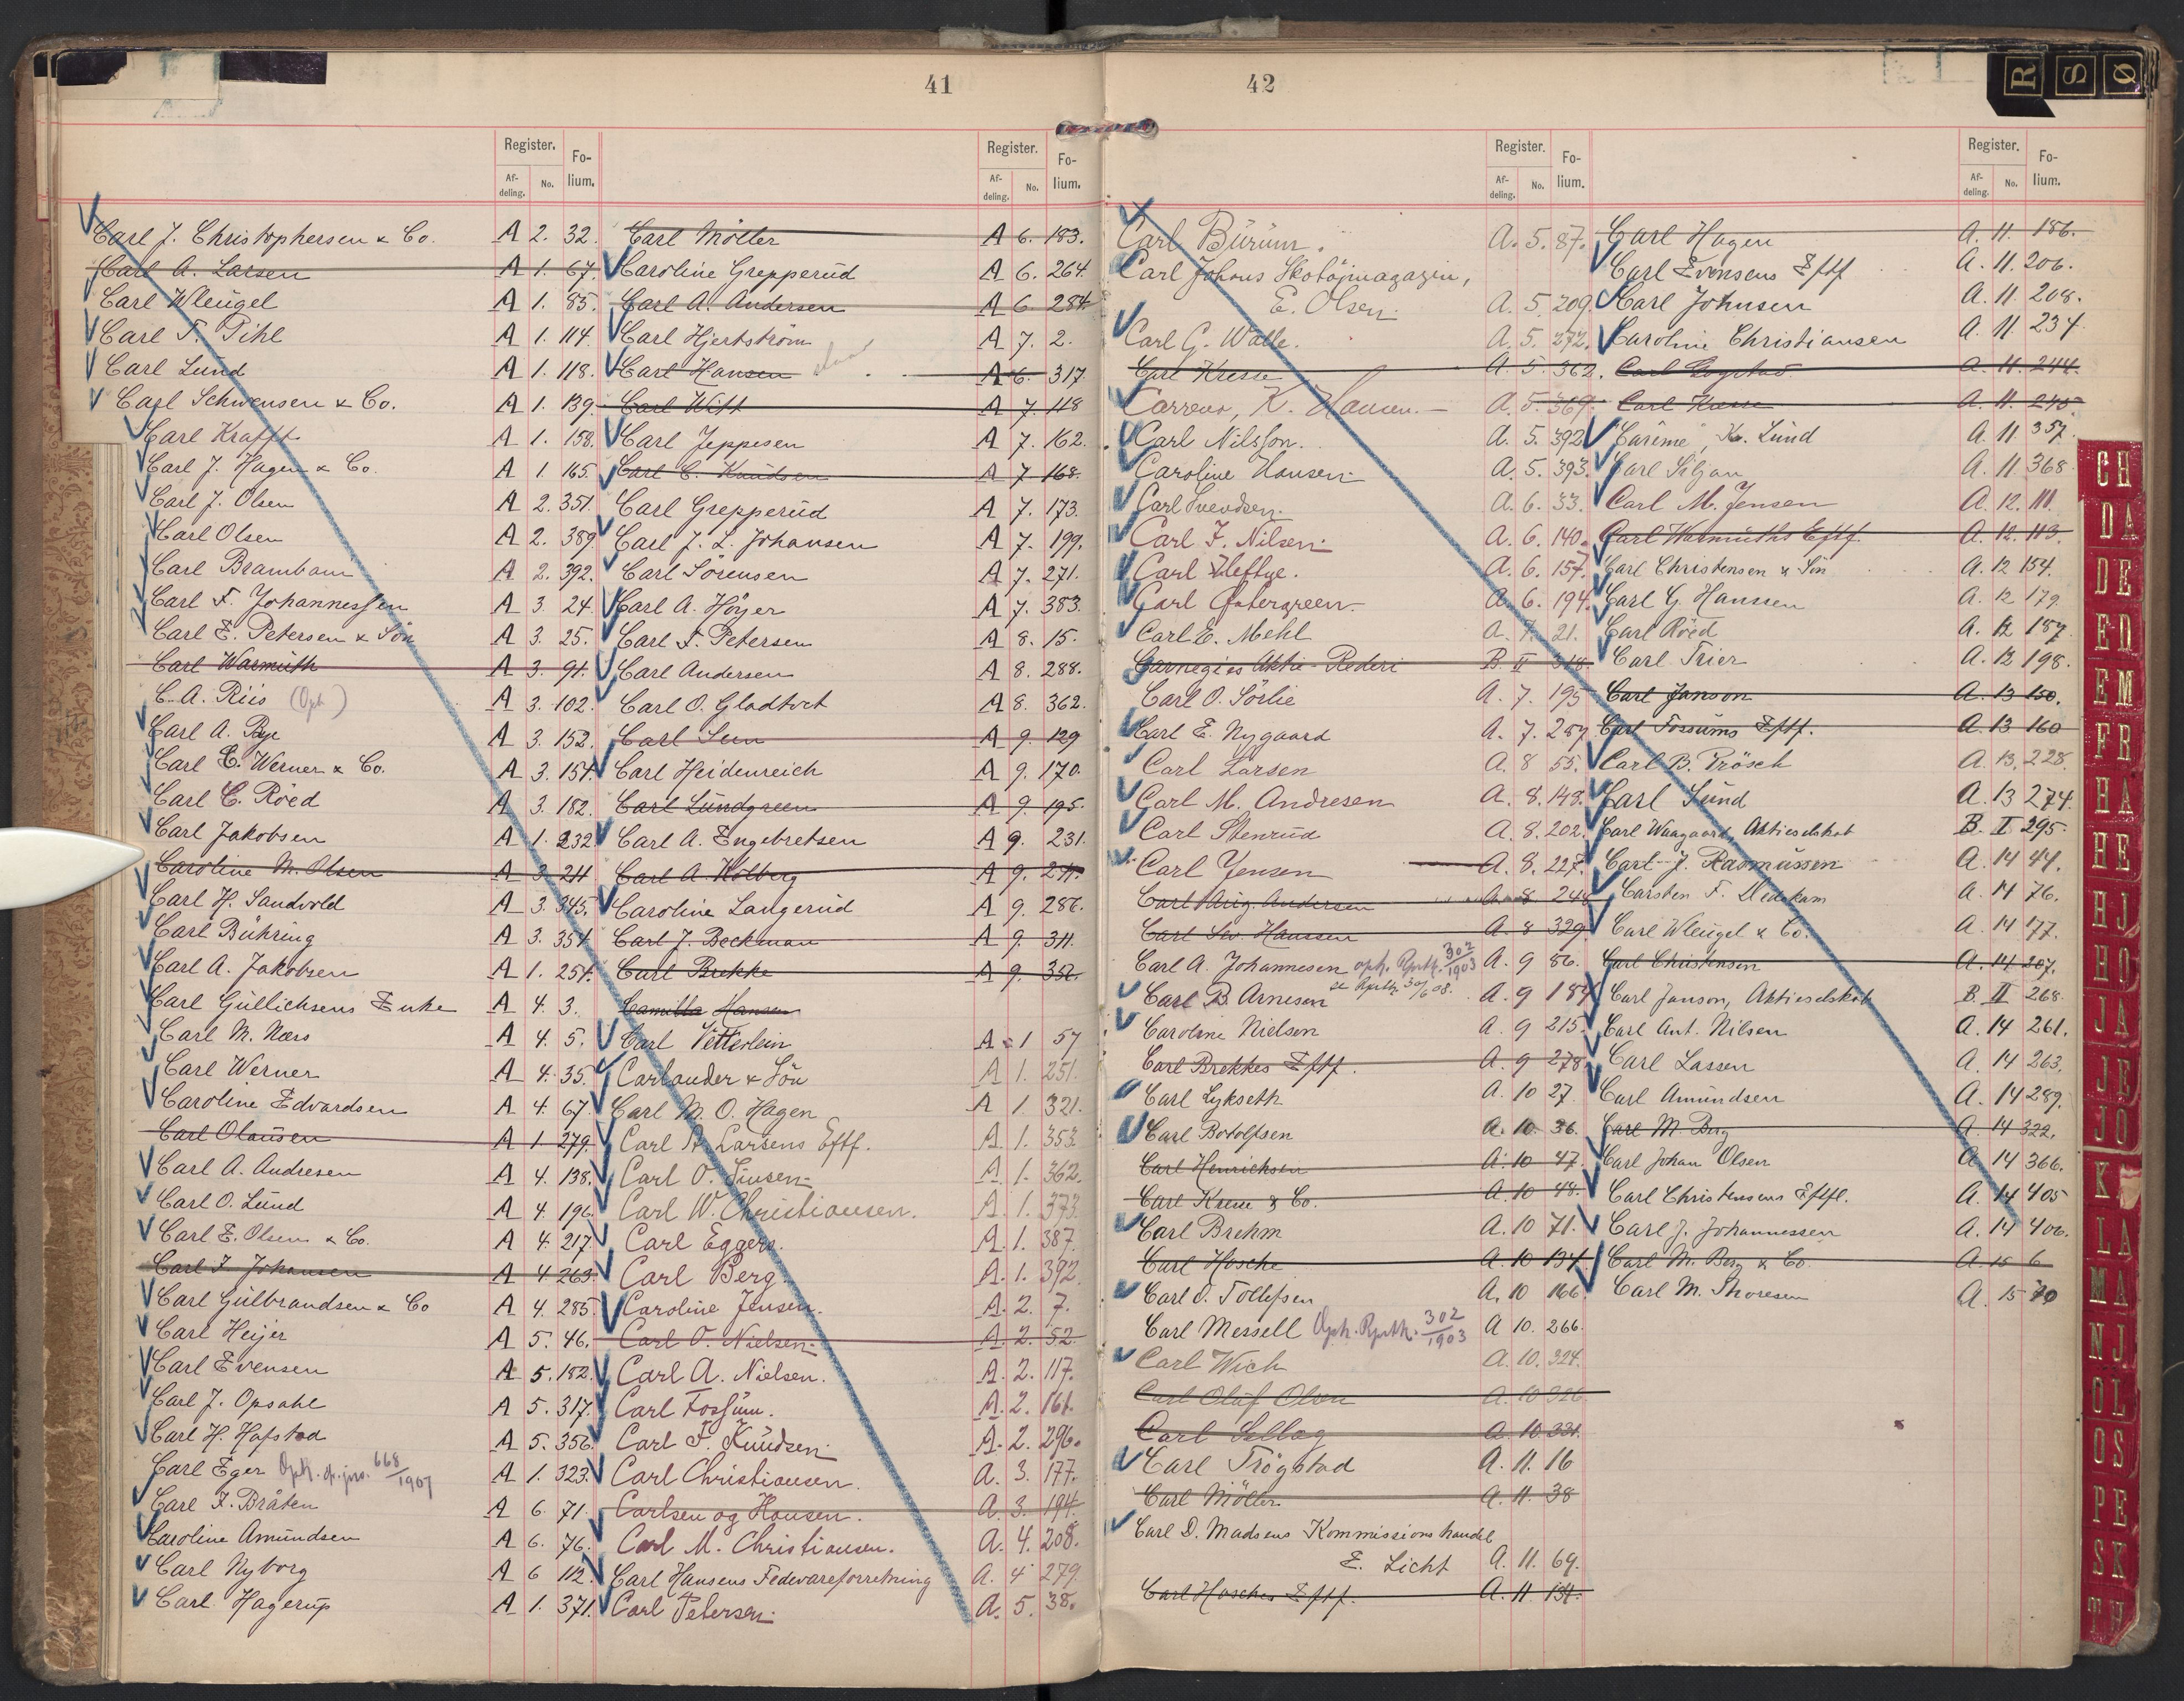 41
Register. Fo-
Af- No. lium.
deling.
Carl J. Christophersen & Co. A 2. 32.
Carl A. Larsen A 1. 67.
Carl Wleügel A 1. 85.
Carl F. Pihl A 1. 114.
Carl Lünd A 1. 118.
Carl Schwensen & Co. A 1. 139
Carl Krafft A 1. 158.
Carl J. Hagen & Co. A 1. 165.
Carl J. Olsen A 2. 351.
Carl Olsen A 2. 389
Carl Brambam A 2. 392.
Carl F. Johannessen A 3. 24.
Carl E. Petersen & Sön A 3. 25.
Carl Warmüth A 3. 91.
C. A. Riis (Oph) A 3. 102.
Carl A. Bye A 3. 152.
Carl C. Werner & Co. A 3. 154.
Carl C. Röed A 3. 182.
Carl Jakobsen A 1. 232
Caroline M. Olsen A 3. 211
Carl H. Sandvold A 3. 345.
Carl Bühring A 3. 354.
Carl A. Jakobsen A 1. 254.
Carl Güllichsens Enke A 4. 3.
Carl M. Næss A 4. 5.
Carl Werner A 4. 35.
Caroline Edvardsen A 4. 67.
Carl Olausen A 1 279.
Carl A. Andresen A 4. 138.
Carl O. Lünd A 4. 196.
Carl E. Olsen & Co. A 4. 217.
Carl F. Johansen A 4. 263.
Carl Gülbrandsen & Co A 4. 285.
Carl Heijer A 5. 46.
Carl Evensen A 5. 182.
Carl J. Opsahl A 5. 317.
Carl H. Hafstad A 5. 356.
Carl Eger Oph. 668/1907 A 1. 323.
Carl F. Bråten A 6. 71.
Caroline Amündsen A 6. 76.
Carl Nyborg A 6 112.
Carl Hagerüp A 1. 371.
Register. Fo-
Af- No. lium.
deling.
Carl Möller A 6. 183.
Caroline Grepperüd A 6. 264.
Carl A. Andersen A 6. 284
Carl Hjertström A 7. 2.
Carl Hansen A 6. 317
Carl Witt A 7. 118
Carl Jeppesen A 7. 162.
Carl C. Knüdsen A 7. 168.
Carl Grepperüd A 7. 173.
Carl J. L. Johansen A 7. 199.
Carl Sörensen A 7. 271.
Carl A. Höyer A 7. 383.
Carl F. Petersen A 8. 15.
Carl Andersen A 8. 288.
Carl O. Gladtvet A 8. 362.
Carl Lem A 9. 129
Carl Heidenreich A 9. 170.
Carl Lündgreen A 9. 195.
Carl A. Engebretsen A 9. 231.
Carl A. Holberg A 9. 271.
Caroline Langerüd A 9. 286.
Carl J. Beckman A 9. 311.
Carl Brekke A 9. 352.
Camilla Hansen
Carl Vetterlein A 1 57
Carlander & Sön A 1. 251.
Carl M. O. Hagen A 1. 321.
Carl A. Larsens Eftf. A. 1. 353.
Carl O. Linsen A. 1. 362.
Carl W. Christiansen. A. 1. 373.
Carl Eggers. A. 1. 387.
Carl Berg. A. 1. 392.
Caroline Jensen. A. 2. 7.
Carl O. Nielsen. A. 2. 52.
Carl A. Nielsen. A. 2. 117.
Carl Fossüm. A. 2. 161.
Carl F. Knüdsen. A. 2. 296.
Carl Christiansen. A. 3. 177.
Carlsen og Hansen. A. 3. 194.
Carl M. Christiansen. A. 4. 208.
Carl Hansens Fedevareforretning A. 4 279.
Carl Petersen. A. 5. 38.
42
Register. Fo-
Af- No. lium.
deling.
Carl Bürüm. A. 5. 87.
Carl Johans Skotöjmagazin,
E. Olsen. A. 5. 209.
Carl G. Walle. A. 5. 272.
Carl Kresse A. 5. 362.
Carreno, K. Hansen. A. 5. 369.
Carl Nilsson. A. 5. 392
Caroline Hansen A. 5. 393.
Carl Svendsen. A. 6. 33.
Carl F. Nilsen. A. 6. 140.
Carl Heftye. A. 6. 157.
Carl Östergreen. A. 6. 194.
Carl E. Mehl A. 7. 21.
Carnegies Aktie-Rederi B. II 318.
Carl O. Sörlie A. 7. 195
Carl E. Nygaard A. 7. 287
Carl Larsen A. 8 55.
Carl M. Andresen A. 8. 143.
Carl Stenrüd A. 8. 202.
Carl Jensen A. 8. 227.
Carl Aug. Andersen A. 8 248
Carl Sev. Hanssen A. 8 329
Carl A. Johannesen oph. Rptk. 302/1903 A. 9 86.
Carl B. Arnesen A. 9 187
Caroline Nielsen A. 9 215.
Carl Brekkes Eftf. A. 9 278.
Carl Lykseth A. 10 27.
Carl Botolfsen A. 10. 36.
Carl Henrichsen A. 10 47.
Carl Kruse & Co. A. 10 48.
Carl Brehm A. 10 71.
Carl Hosche A. 10 134.
Carl O. Tollefsen A. 10 166.
Carl Messell Oph. Rptk. 302/1903 A 10. 266.
Carl Wich A. 10. 324.
Carl Olaf Olsen A. 10 326
Carl Sellag A. 10 331.
Carl Trögstad A. 11. 16
Carl Möller A. 11. 38
Carl D. Madsens Kommissionshandel
E. Licht A. 11. 69.
Carl Hosches Eftf. A. 11. 134.
Register. Fo-
Af- No. lium.
deling.
Carl Hagen A. 11. 186.
Carl Evensens Eftf A. 11. 206.
Carl Johnsen A. 11. 208.
Caroline Christiansen A. 11 234.
Carl Gogstad A. 11. 244.
Carl Kresse A. 11. 245
"Carême", Kr. Lünd A. 11 357.
Carl Siljan A. 11 368.
Carl M. Jensen A. 12. 111.
Carl Warmüths Eftf. A. 12. 113.
Carl Christensen & Sön A. 12 154.
Carl G. Hanssen A. 12 179.
Carl Röed A. 12 187.
Carl Trier A. 12 198.
Carl Janson A. 13 150.
Carl Fossüms Eftf. A. 13 160
Carl B. Frösch A. 13. 228.
Carl Lünd A. 13 274.
Carl Waagaard, Aktieselskab B. II 295.
Carl J. Rasmüssen A. 14 44.
Carsten F. Dedekam A. 14 76.
Carl Wleügel & Co. A. 14 177.
Carl Christensen A. 14 207.
Carl Janson, Aktieselskab B. II 268.
Carl Ant. Nilsen A. 14 261.
Carl Lassen A. 14 263.
Carl Amündsen A. 14 289.
Carl M. Berg A. 14 322.
Carl Johan Olsen A 14 366.
Carl Christensens Eftf. A. 14 405
Carl J. Johannessen A. 14 406.
Carl M. Berg & Co. A. 15 6
Carl M. Thoresen A. 15 70
R S Ø
CH
DA
DE
EN
EM
FR
HA
HE
HJ
HO
JA
JE
JO
K
LA
MA
NJ
OL
OS
PE
SK
TH